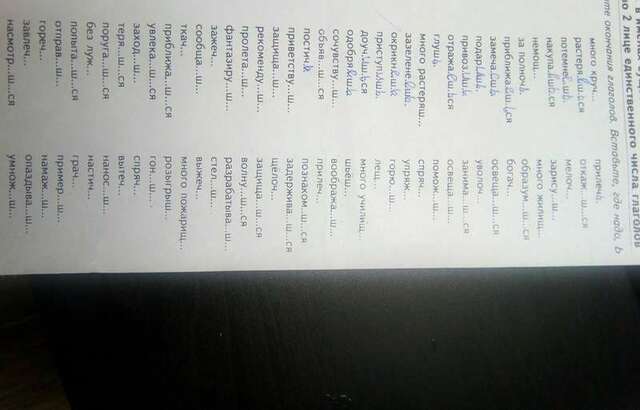 о 2 лице единственного числа глаголов
те окончания глаголов. Вставьте, где надо, Ь
много круч...
растеряешься
потемнеешь
немощ...
за полночь
приближаешься
замечаешь
подаришь
привозишь
отражаешься
глушь
много растеряш...
зазеленеешь
окрикнешь
приступишь
доучишься
одобряешь
сочувству...ш...
объяв...ш...ся
постичь
приветству...ш...
защища...ш...
рекоменду...ш...
пролета...ш...
фантазиру...ш...
зажеч...
сообща...ш...
ткач...
приближа...ш...ся
увлека...ш...ся
заход...ш...
теря...ш...ся
поруга...ш...ся
без луж...
попыта...ш...ся
отправ...ш...ся
гореч...
завлеч...
насмотр...ш...ся
прилечь
откаж...ш...ся
мелоч...
зарису...ш...
много жилищ...
образум...ш...ся
богач...
освеща...ш...ся
уволоч...
занима...ш...ся
освеща...ш...
помож...ш...
спряч...
упряж...
горю...ш...
лещ...
много училищ...
шьёш...
воображa...ш...
прилеч...
познаком...ш...ся
задержива...ш...ся
щёлоч...
защища...ш...ся
волну...ш...ся
разрабатыва...ш...
стел...ш...
выжеч...
много пожарищ...
розыгрыш...
гон...ш...
спряч...
вытеч...
нанос...ш...
настич...
грач...
пример...ш...
намаж...ш...
опаздыва...ш...
умнож...ш...